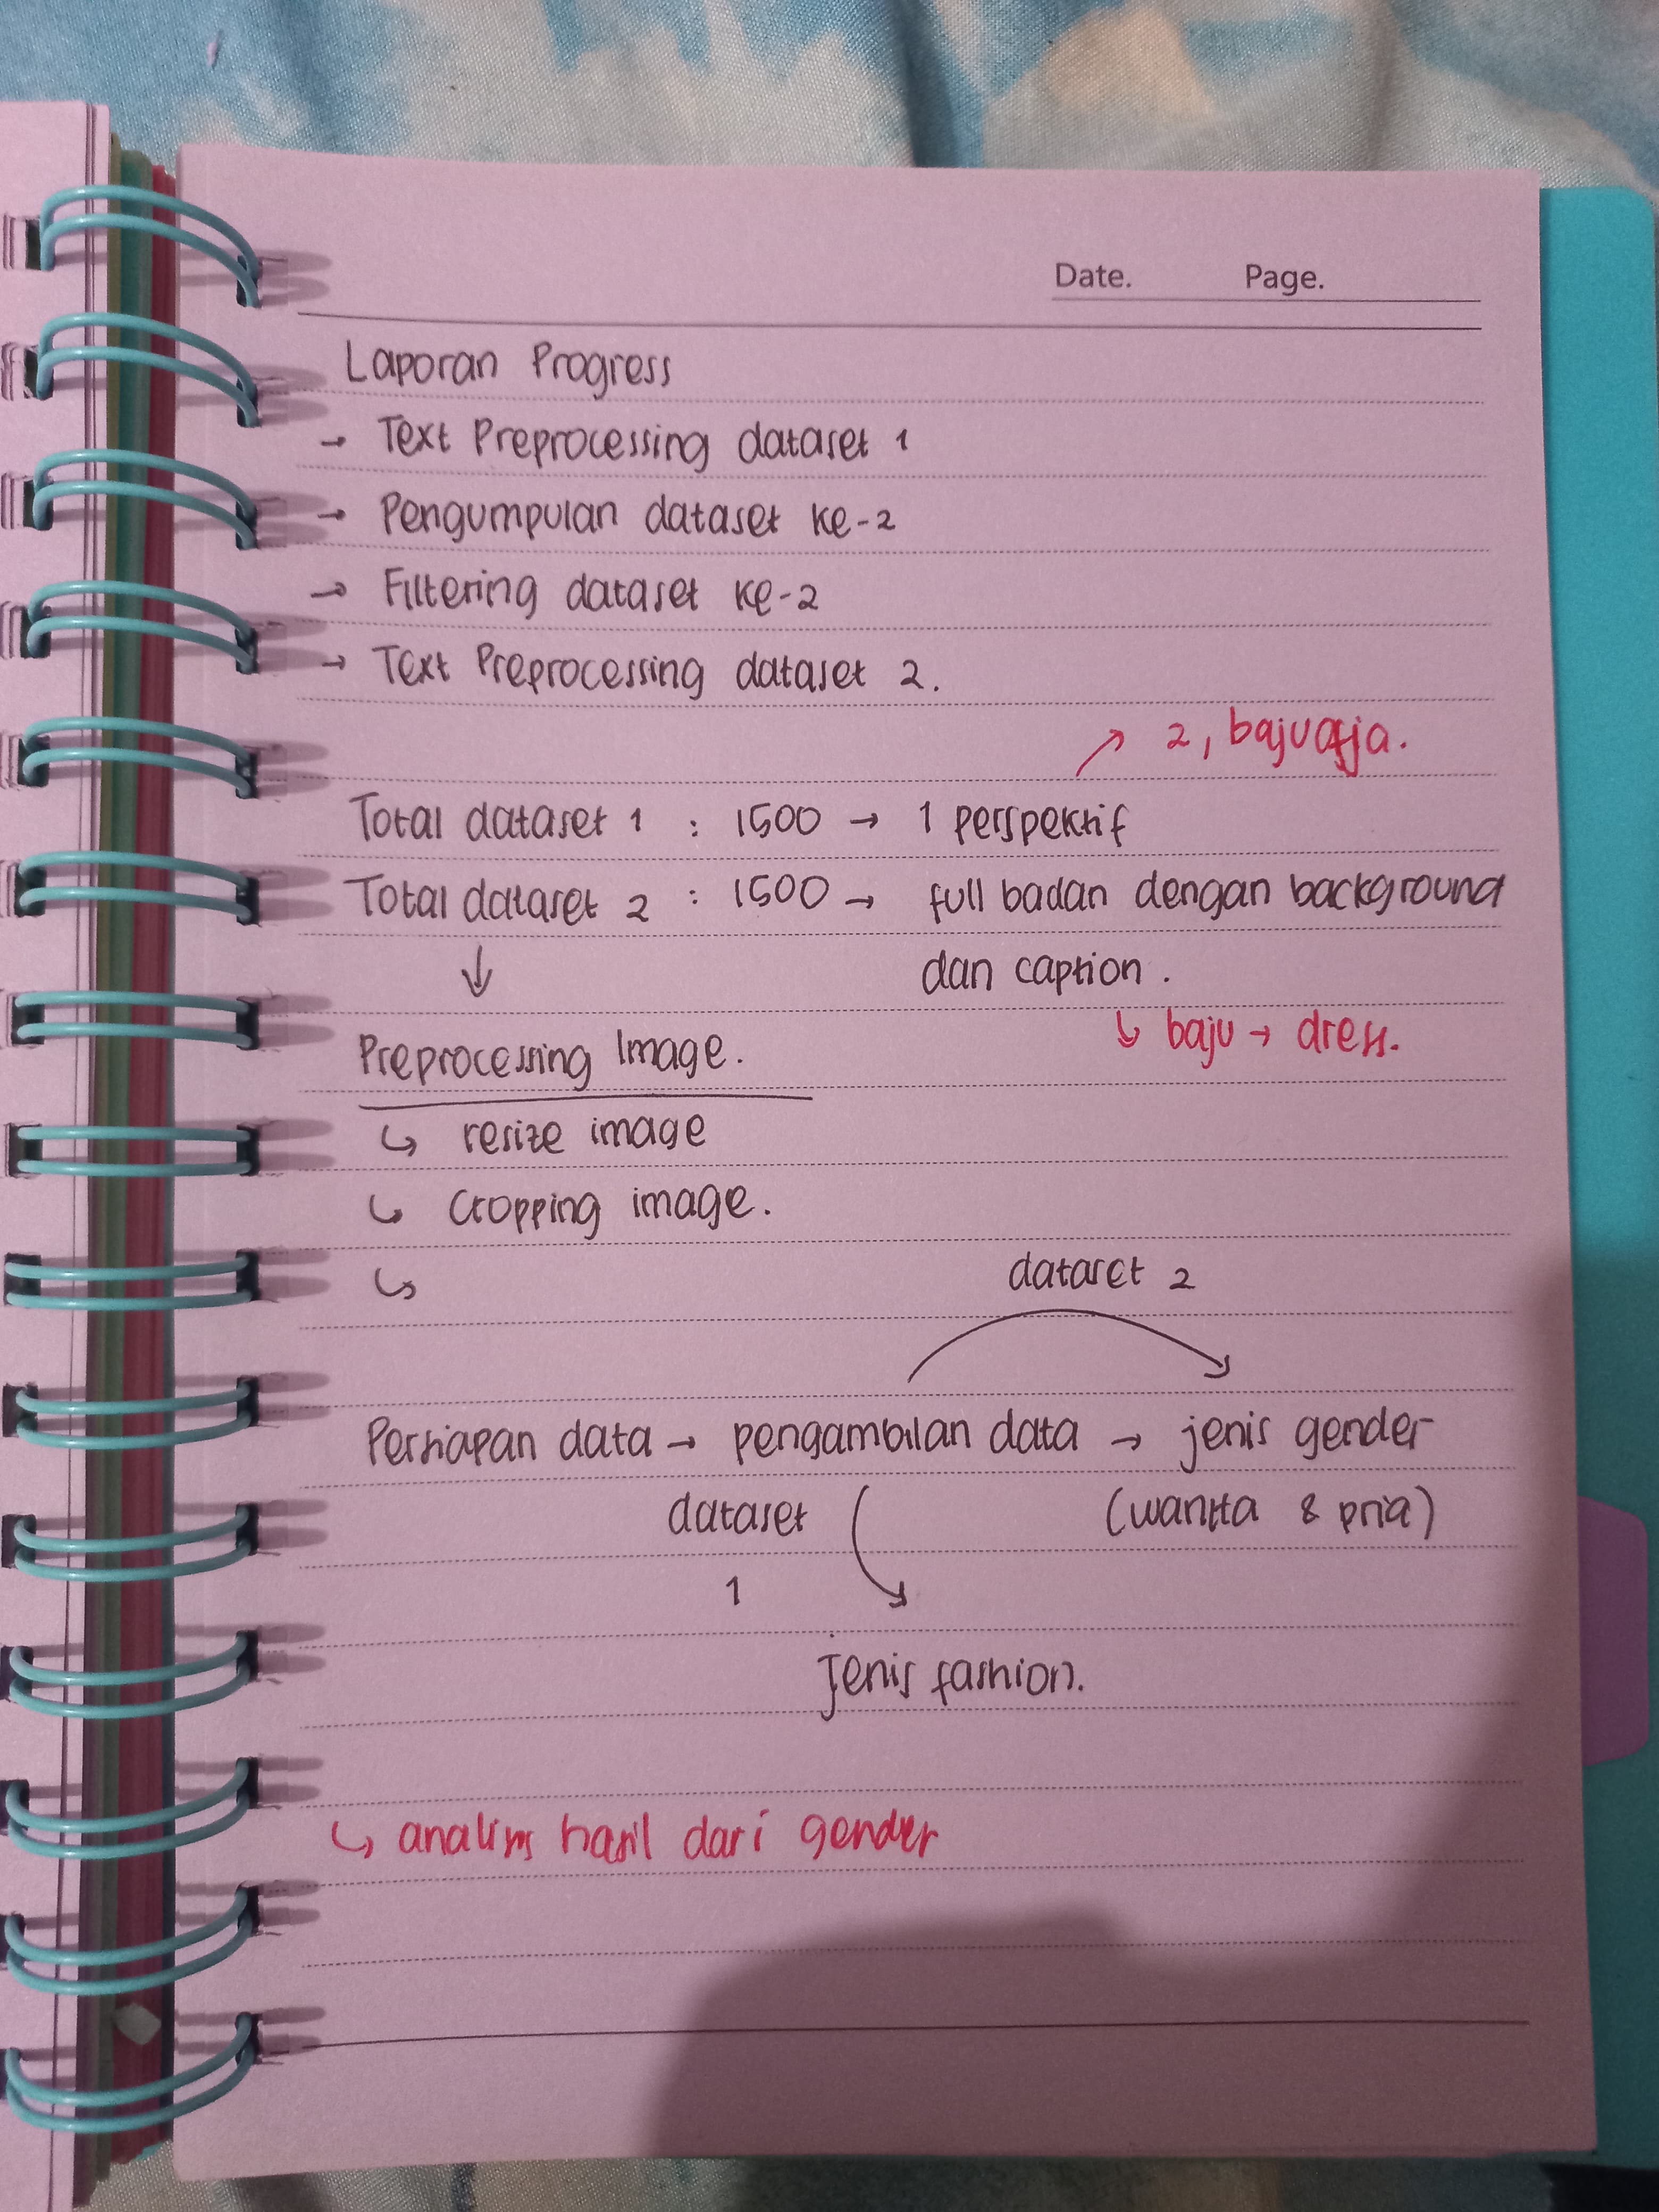 Date. Page.
Laporan Progress
→ Text Preprocessing dataset 1
→ Pengumpulan dataset ke-2
→ Filtering dataset ke-2
→ Text Preprocessing dataset 2.
↗ 2, baju aja.
Total dataset 1 : 1500 → 1 perspektif
Total dataset 2 : 1500 → full badan dengan background
↓ dan caption.
Preprocessing Image. ↳ baju → dress.
↳ resize image
↳ Cropping image.
↳ dataset 2
Persiapan data → pengambilan data → jenis gender
dataset (wanita & pria)
1
Jenis fashion.
↳ analisis hasil dari gender